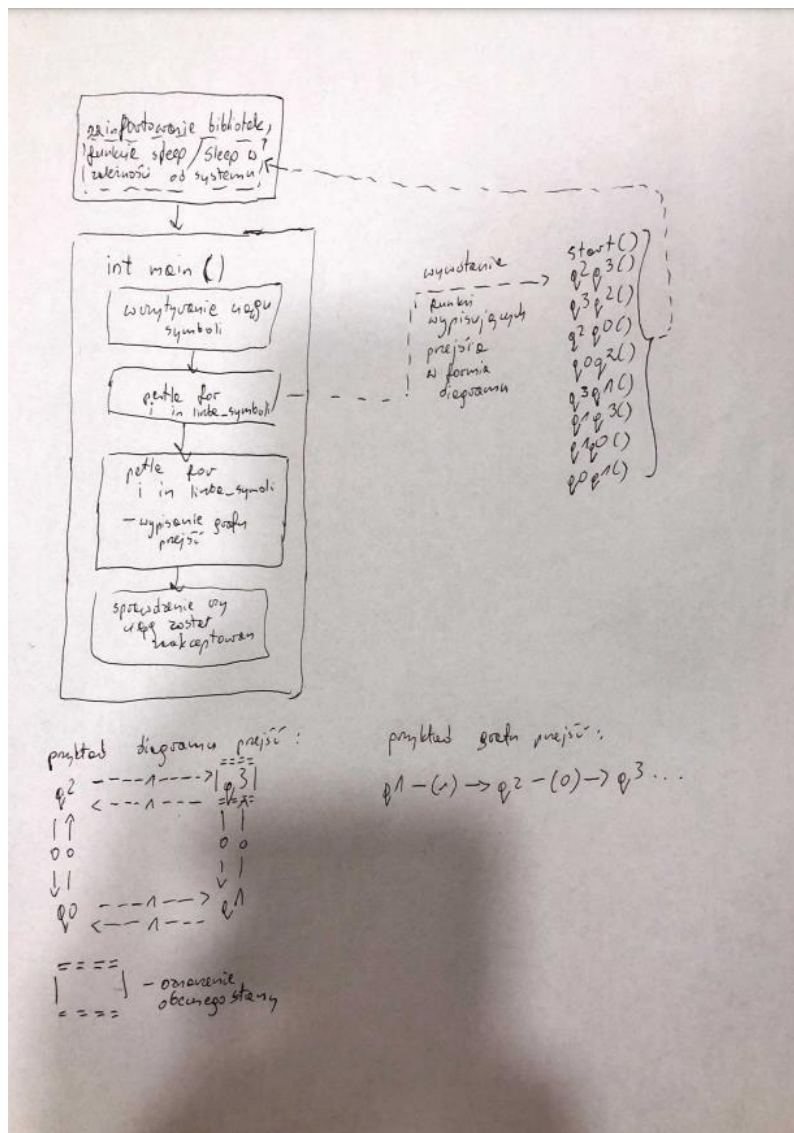 zaimportowanie bibliotek,
funkcje sleep / Sleep w
zależności od systemu
int main ()
wczytywanie ciągu
symboli
pętla for
i in liczba_symboli
pętla for
i in liczba_symoli
- wypisanie grafu
przejść
sprawdzenie czy
ciąg został
zaakceptowan
wywołanie
funkcji
wypisujących
przejścia
w formie
diagramu
start()
q2q3()
q3q2()
q2q0()
q0q2()
q3q1()
q1q3()
q1q0()
q0q1()
przykład diagramu przejść:
====
q2 ----1----> |q3|
<---1--- ====
| ↑ | ↑
0 0 0 0
↓ | ↓ |
q0 ---1---> q1
<---1---
====
| | - oznaczenie
obecnego stanu
====
przykład grafu przejść:
q1 -(1)-> q2 -(0)-> q3 ...